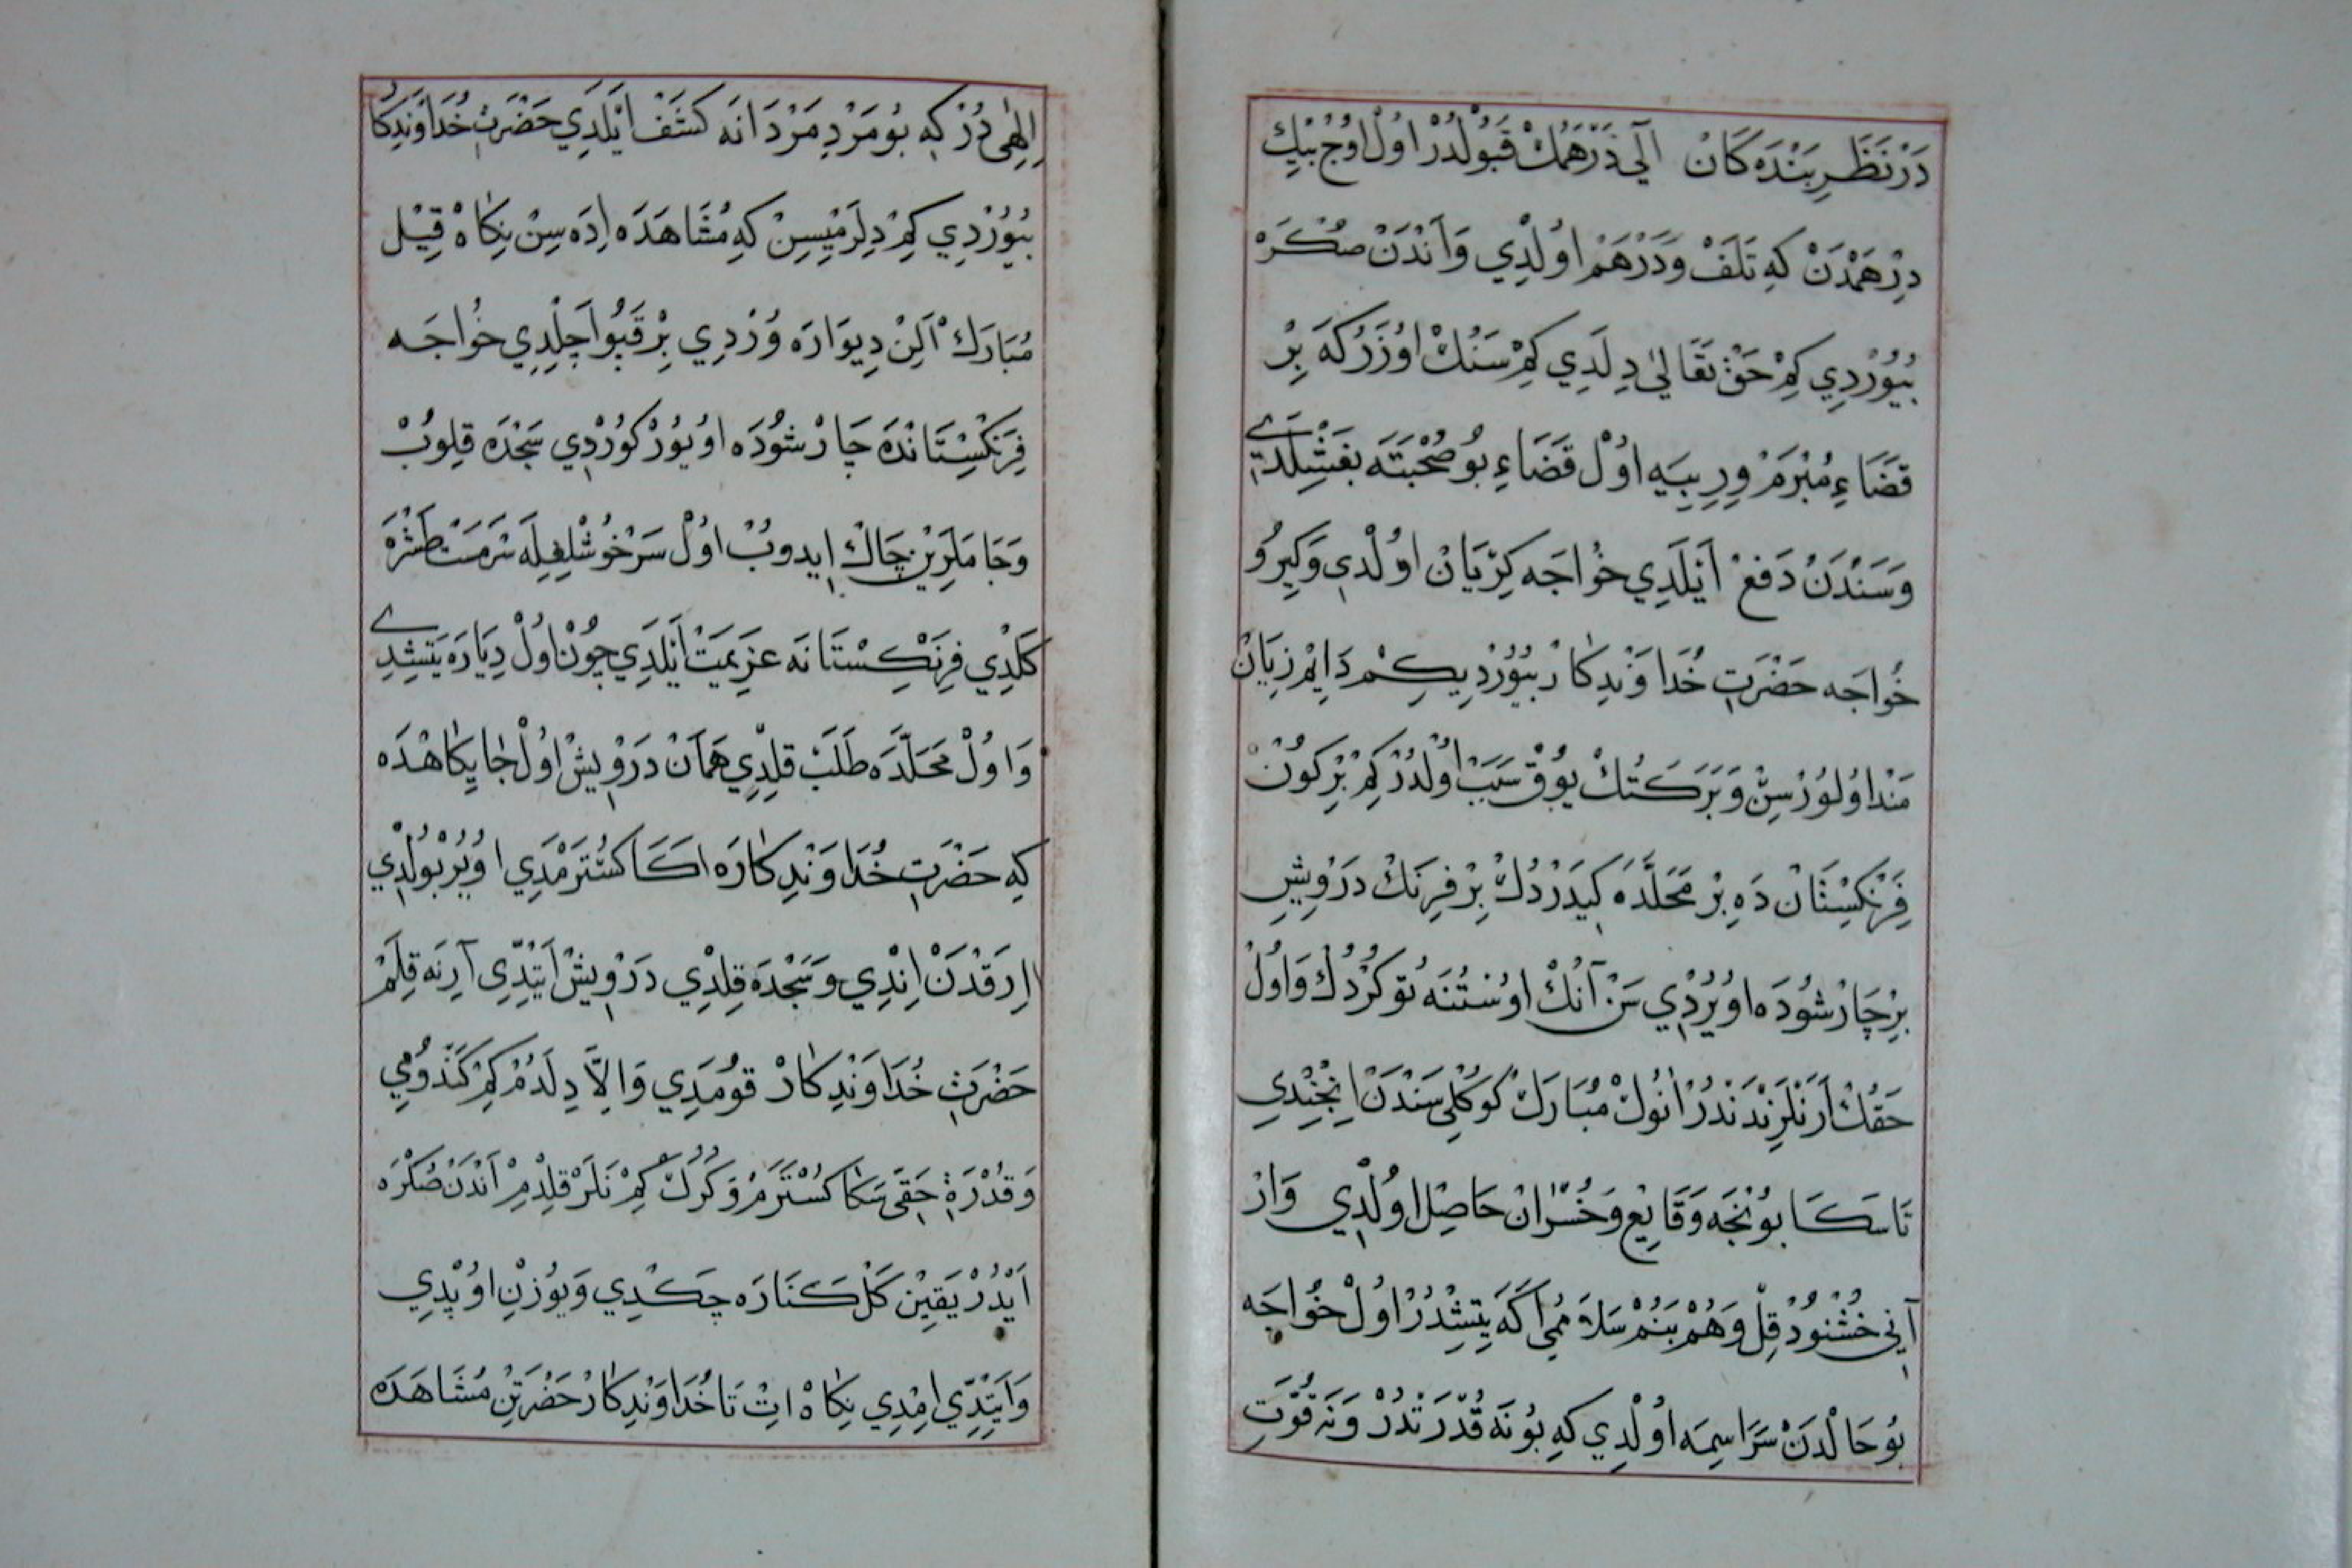 دَرْنَظَرِ بَنْدَه كَانْ اَلِّي دِرْهَمُكْ قَبُولْدُرْ اوُلْ اوُجْ بِيْكِ
دِرْهَمْدَنْ كِه تَلَفْ وَدَرْهَمْ اوُلْدِي وَاَنْدَنْ صُكْرَه
بُيُوُرْدِي كِمْ حَقْ تَعَالٰي دِلَدِي كِمْ سَنُكْ اوُزَرُكَه بِرْ
قَضَاءِ مُبْرَمْ وِرِيبِيَه اوُلْ قَضَاءِ بُو صُحْبَتَه بَغِشْلَدِي
وَسَنْدَنْ دَفعْ اَيْلَدِي خُواجَه كِرْيَانْ اوُلْدِي وَكِيرُو
خُواجَه حَضْرَتِ خُدَاوَنْدِكَارْ بُيُوُرْدِيكِمْ دَايِمْ زِيَانْ
مَنْد اوُلوُرْسِنْ وَبَرَكَتُكْ يوُقْ سَبَبْ اوُلْدُرْ كِمْ بِرْ كوُنْ
فِرَنْكِسْتَانْ دَه بِرْ مَحَلَّدَه كِيدَرْدُكْ بِرْ فِرَنْكْ دَرْوِيشِ
بِرْ چَارْشُودَه اوُيُرْدِي سَنْ اَنُكْ اوُسْتُنَه تُوكُرْدُكْ وَاوُلْ
حَقُكْ اَرَنْلَرِنْدَنْدُرْ انُوكْ مُبَارَكْ كوُكْلِي سَنْدَنْ اِنْجِنْدِي
تَا سَكَا بوُنْجَه وَقَايِعْ وَخُسْرَانْ حَاصِلْ اوُلْدِي وَارْ
آنِي خُشْنوُدْ قِلْ وَهُمْ بَنُمْ سَلَامُمِي اَكَه يَتِشْدُرْ اوُلْ خُواجَه
بُوحَالْدَنْ سَرَاسِمَه اوُلْدِي كِه بُونَه قُدْرَتْدُرْ وَنَه قُوَّتِ
اِلٰهِى دُرْ كِه بُو مَرْدِ مَرْدَانَه كَشَفْ اَيْلَدِي حَضْرَتِ خُدَاوَنْدِكَا
بُيُوُرْدِي كِمْ دِلَرْمِيسِنْ كِه مُشَاهَدَه اِدَه سِنْ نِكَاهْ قِيْل
مُبَارَكْ اَلِنْ دِيوَارَه وُرْدِي بِرْ قَبُو اَجِلْدِي خُواجَه
فِرَنْكِسْتَانْدَه چَارْشوُدَه اوُيوُرْ كوُرْدِي سَجْدَه قِلوُبْ
وَجَامَلَرِينْ چَاكْ ايدوبْ اوُلْ سَرْخُوشْلِغِلَه سَرمَسْت طَشْرَه
كَلْدِي فِرَنْكِسْتَانَه عَزِيمَتْ اَيْلَدِي چوُنْ اوُلْ دِيَارَه يَتِشْدِي
وَاوُلْ مَحَلَّدَه طَلَبْ قِلْدِي هَمَانْ دَرْوِيشْ اوُلْ جَايِكَاهْدَه
كِه حَضْرَتِ خُدَاوَنْدِكَارَه اَكَا كُسْتَرْمَدِي اوُيُرْ بُولْدِي
اِرَقْدَنْ اِنْدِي وَسَجْدَه قِلْدِي دَرْوِيشْ اَيْتِدِّي آرِنَه قِلَمْ
حَضْرَتِ خُدَاوَنْدِكَارْ قوُمَدِي وَاِلَّا دِلَدُمْ كِمْ كَنْدوُمِي
وَقُدْرَةِ حَقِّى سَكَا كُسْتَرَمْ وَكُرُكْ كِمْ نَلَرْ قِلْدِمْ اَنْدَنْ صُكْرَه
اَيْدُرْ يَقِينْ كَلْ كَنَارَه چَكْدِي وَيوُزنْ اوُپْدِي
وَاَيْتِدِّي اِمْدِي نِكَاهْ اِتْ تَا خُدَاوَنْدِكَارْ حَضْرَتِنْ مُشَاهَدَه